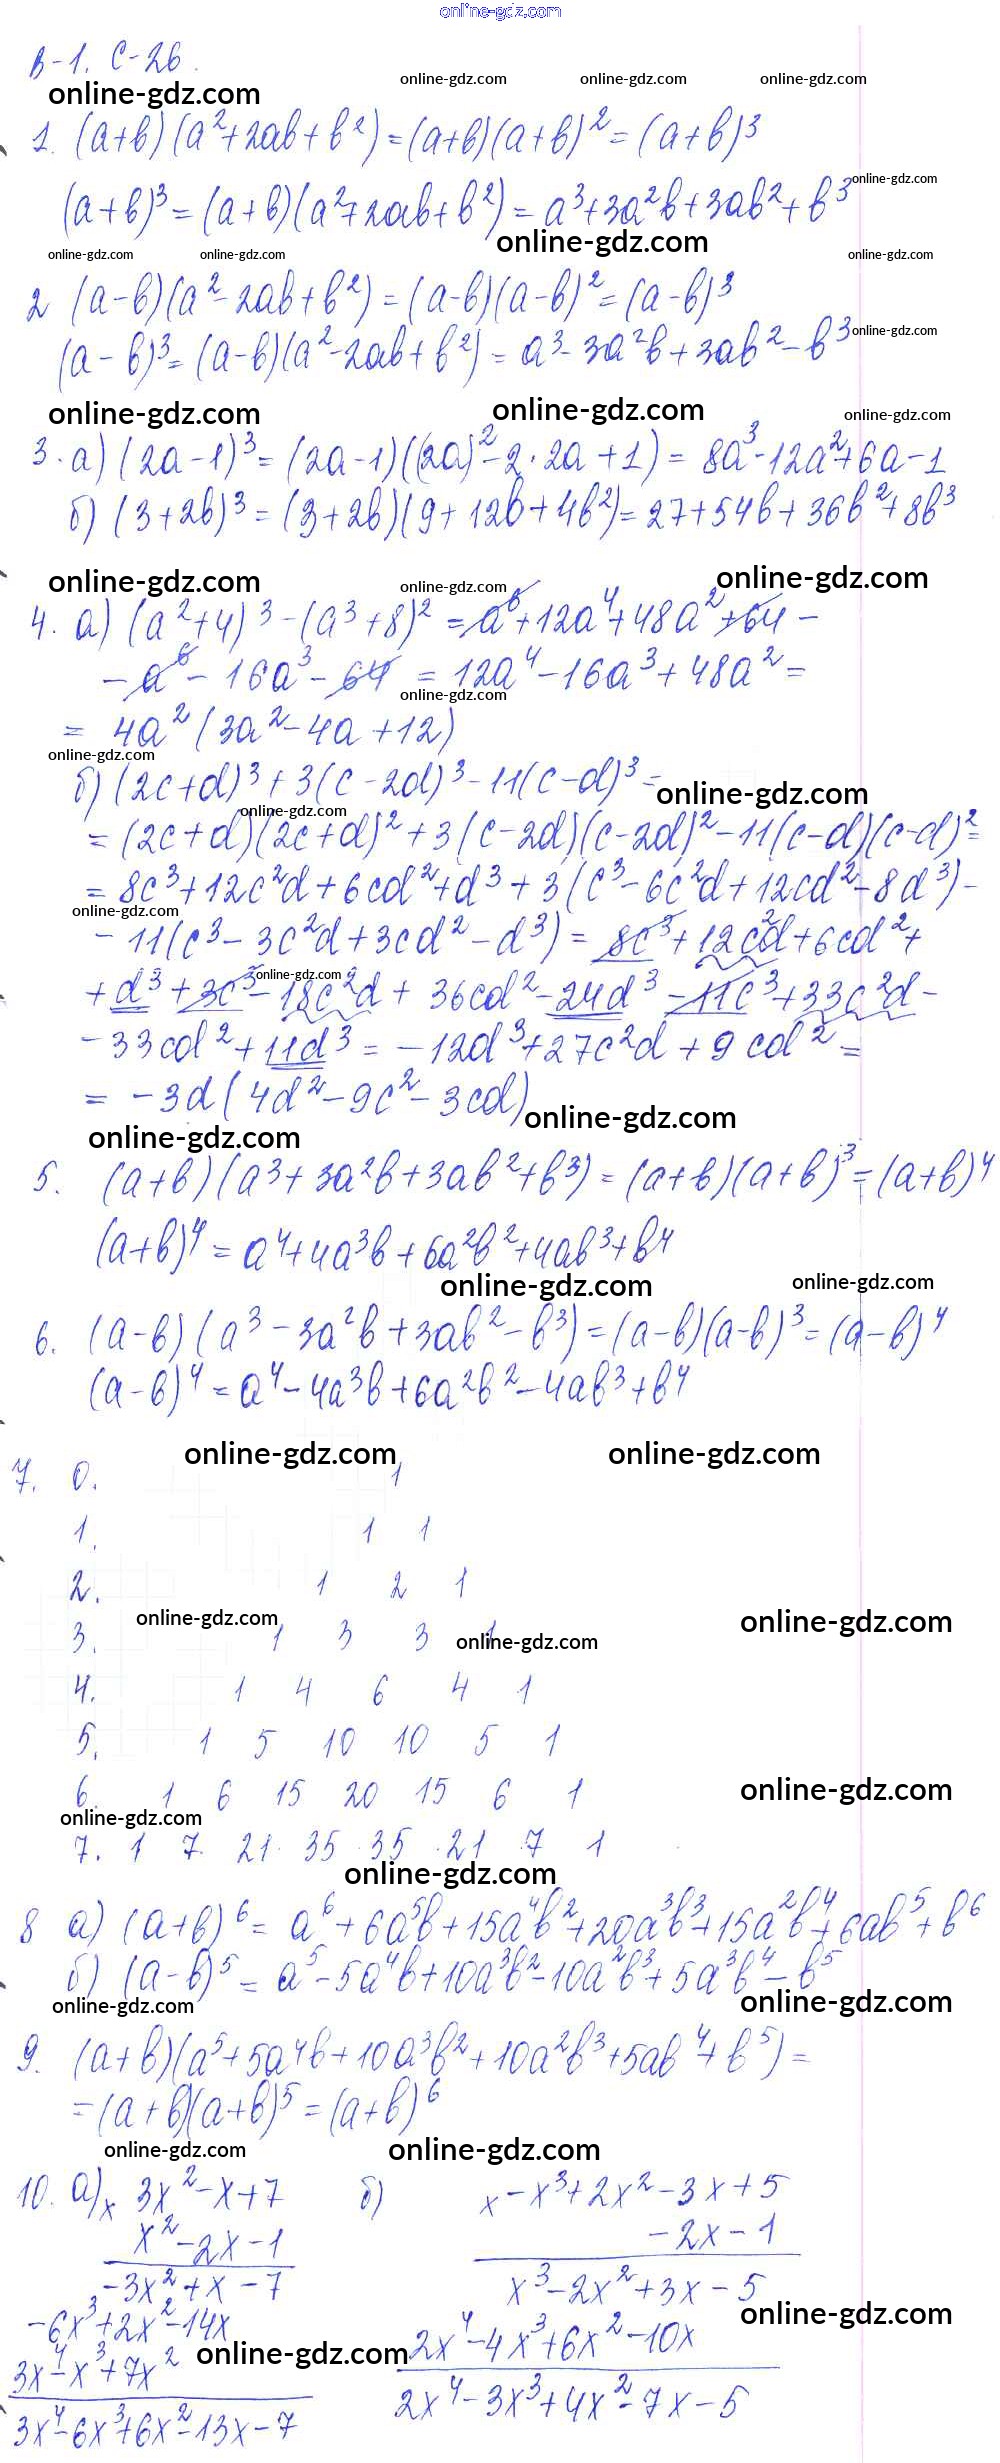 online-gdz.com
В-1. С-26.
online-gdz.com online-gdz.com online-gdz.com
online-gdz.com
1. (a+b)(a²+2ab+b²)=(a+b)(a+b)²=(a+b)³
online-gdz.com
(a+b)³=(a+b)(a²+2ab+b²)=a³+3a²b+3ab²+b³
online-gdz.com
online-gdz.com online-gdz.com online-gdz.com
2 (a-b)(a²-2ab+b²)=(a-b)(a-b)²=(a-b)³
online-gdz.com
(a-b)³=(a-b)(a²-2ab+b²)=a³-3a²b+3ab²-b³
online-gdz.com online-gdz.com online-gdz.com
3. а) (2a-1)³=(2a-1)((2a)²-2·2a+1)=8a³-12a²+6a-1
б) (3+2b)³=(3+2b)(9+12b+4b²)=27+54b+36b²+8b³
online-gdz.com online-gdz.com online-gdz.com
4. а) (a²+4)³-(a³+8)²=a⁶+12a⁴+48a²+64-
-a⁶-16a³-64=12a⁴-16a³+48a²=
online-gdz.com
=4a²(3a²-4a+12)
online-gdz.com
б) (2c+d)³+3(c-2d)³-11(c-d)³=
online-gdz.com
online-gdz.com
=(2c+d)(2c+d)²+3(c-2d)(c-2d)²-11(c-d)(c-d)²=
=8c³+12c²d+6cd²+d³+3(c³-6c²d+12cd²-8d³)-
online-gdz.com
-11(c³-3c²d+3cd²-d³)=8c³+12c²d+6cd²+
online-gdz.com
+d³+3c³-18c²d+36cd²-24d³-11c³+33c²d-
-33cd²+11d³=-12d³+27c²d+9cd²=
=-3d(4d²-9c²-3cd)
online-gdz.com
online-gdz.com
5. (a+b)(a³+3a²b+3ab²+b³)=(a+b)(a+b)³=(a+b)⁴
(a+b)⁴=a⁴+4a³b+6a²b²+4ab³+b⁴
online-gdz.com online-gdz.com
6. (a-b)(a³-3a²b+3ab²-b³)=(a-b)(a-b)³=(a-b)⁴
(a-b)⁴=a⁴-4a³b+6a²b²-4ab³+b⁴
online-gdz.com online-gdz.com
7. 0. 1
1. 1 1
2. 1 2 1
online-gdz.com online-gdz.com
3. 1 3 3 1
online-gdz.com
4. 1 4 6 4 1
5. 1 5 10 10 5 1
6. 1 6 15 20 15 6 1
online-gdz.com
online-gdz.com
7. 1 7 21 35 35 21 7 1
online-gdz.com
8 а) (a+b)⁶=a⁶+6a⁵b+15a⁴b²+20a³b³+15a²b⁴+6ab⁵+b⁶
б) (a-b)⁵=a⁵-5a⁴b+10a³b²-10a²b³+5a³b⁴-b⁵
online-gdz.com online-gdz.com
9. (a+b)(a⁵+5a⁴b+10a³b²+10a²b³+5ab⁴+b⁵)=
=(a+b)(a+b)⁵=(a+b)⁶
online-gdz.com online-gdz.com
10. а) x 3x²-x+7
x²-2x-1
-3x²+x-7
-6x³+2x²-14x
3x⁴-x³+7x²
3x⁴-6x³+6x²-13x-7
б) x -x³+2x²-3x+5
-2x-1
x³-2x²+3x-5
2x⁴-4x³+6x²-10x
2x⁴-3x³+4x²-7x-5
online-gdz.com
online-gdz.com